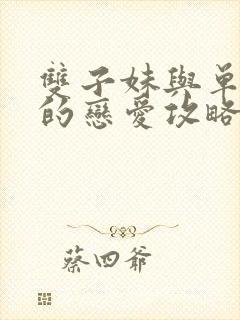 雙子妹與單
的戀愛攻略
蔡四爺